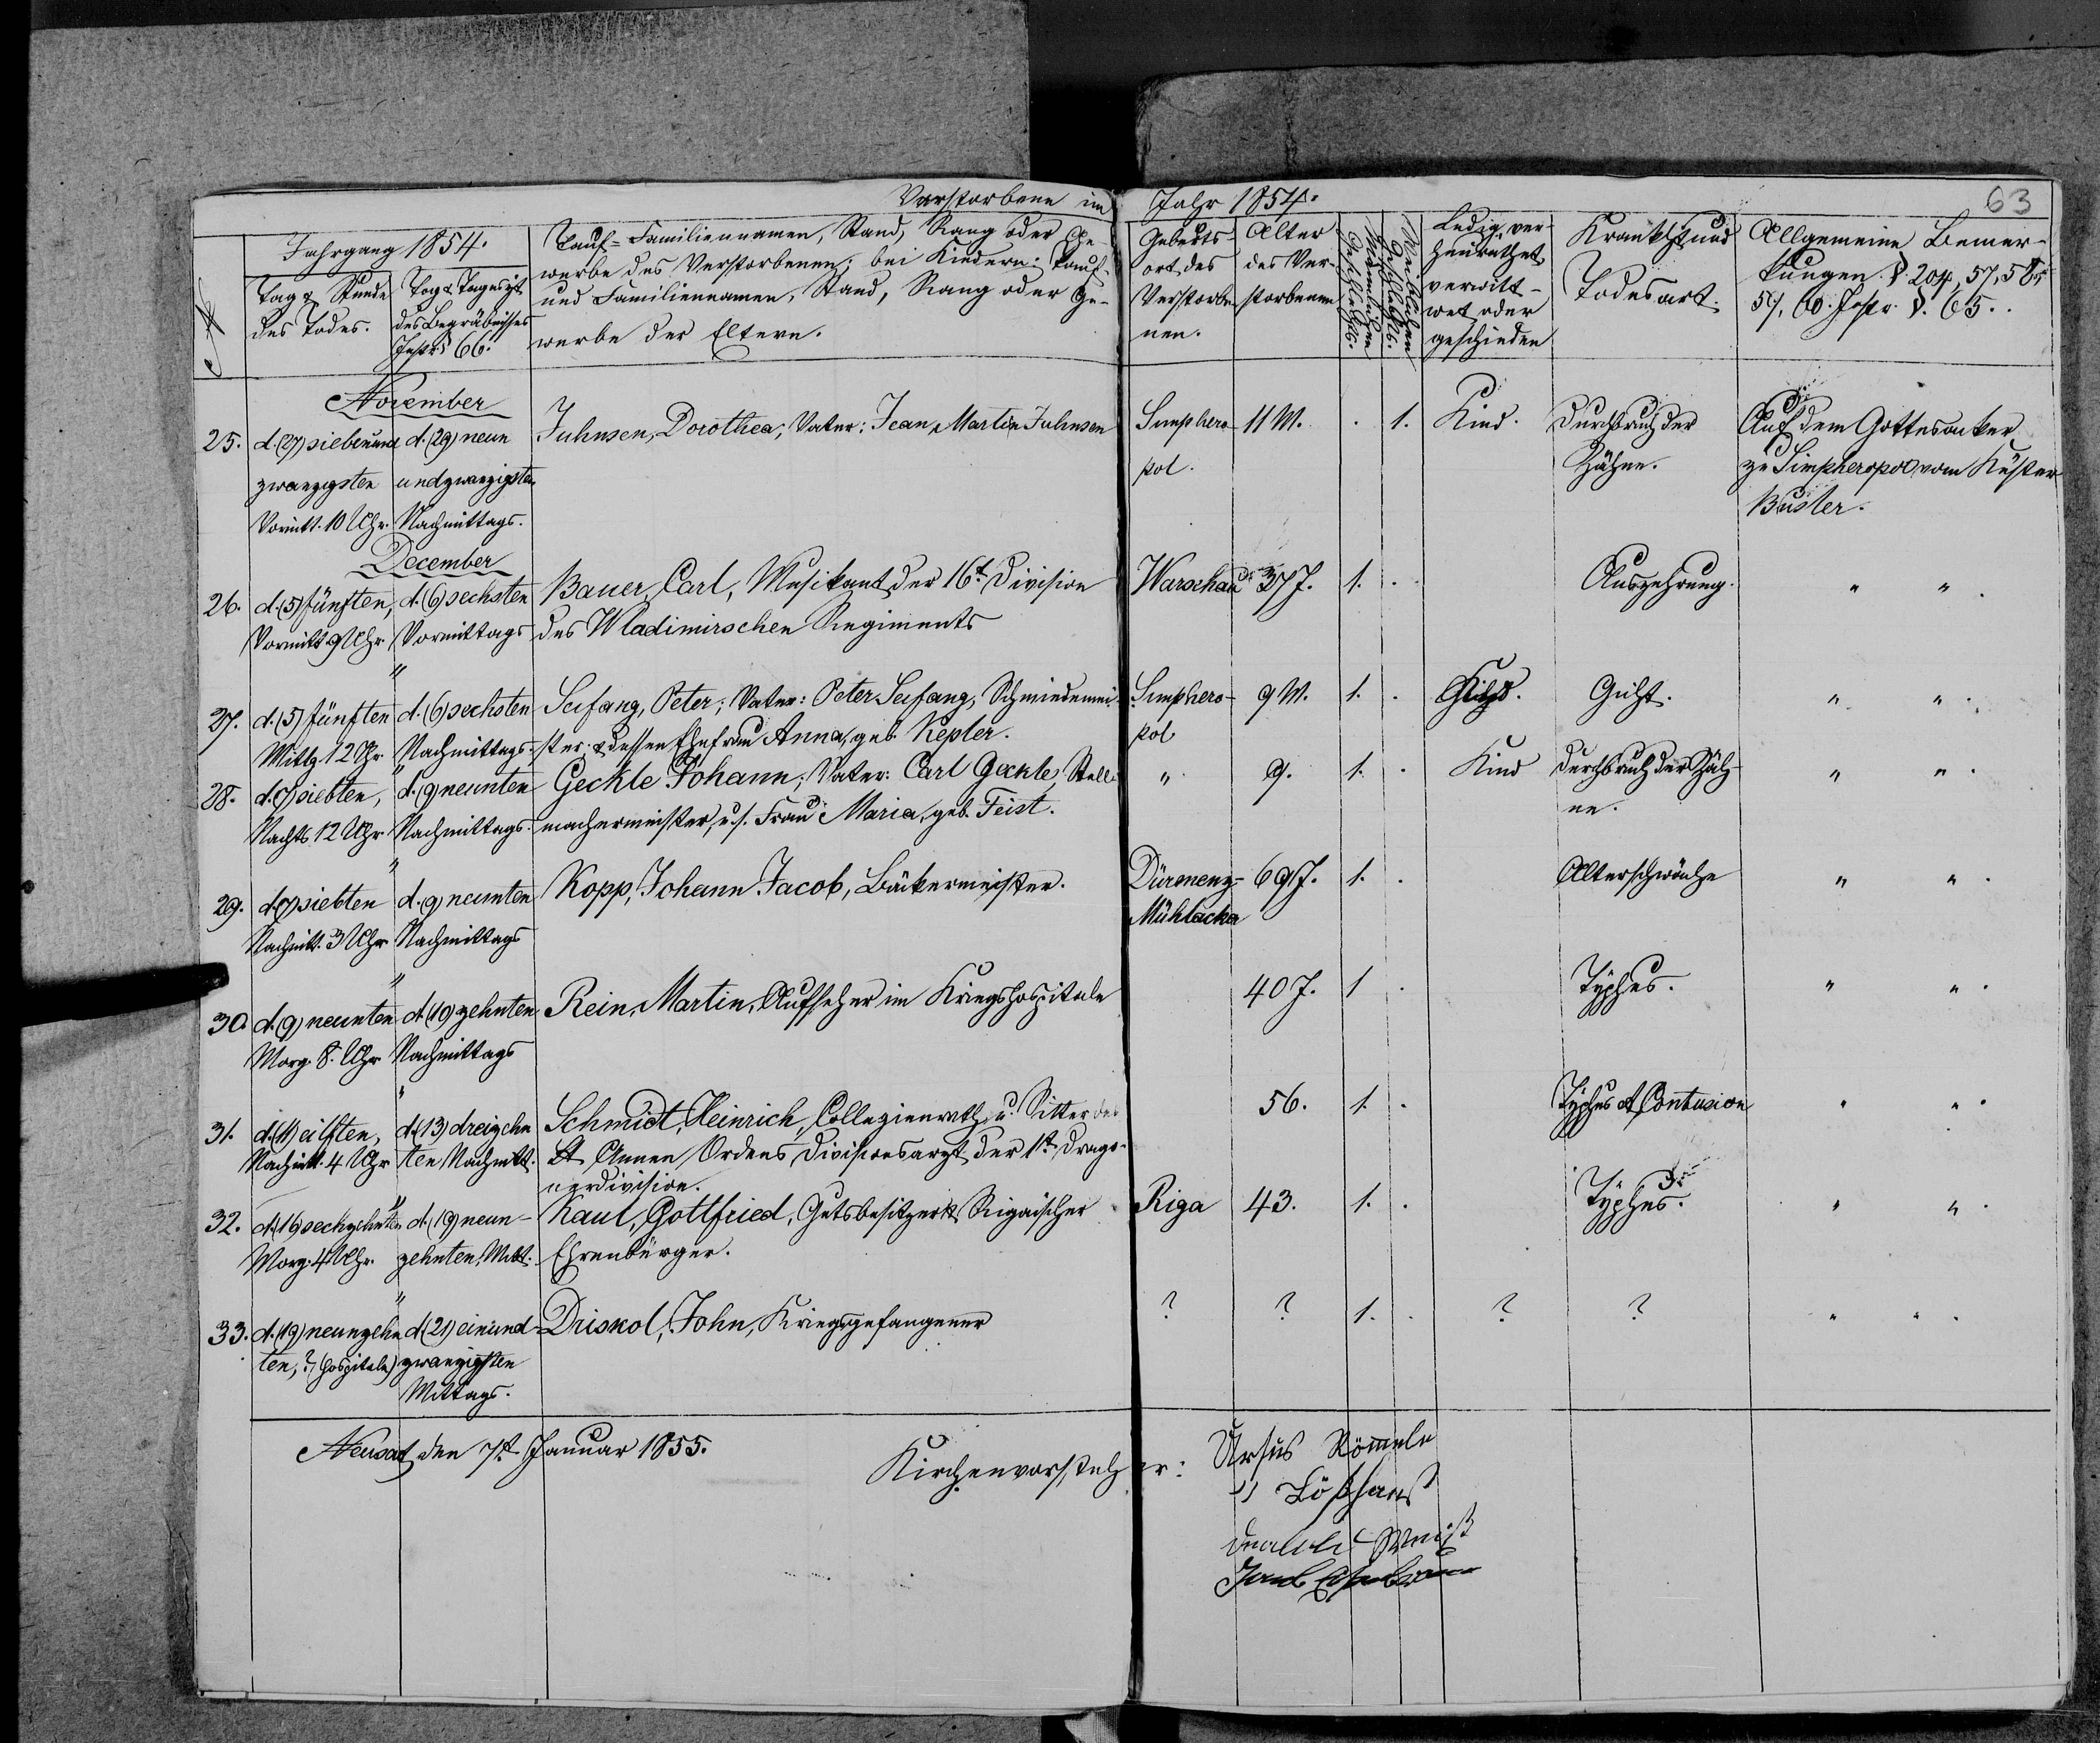 Verstorbene im Jahr 1854.
63
№
Jahrgang 1854.
Tag & Stunde
des Todes.
Tag & Tageszt
des Begräbnisses
Instr. § 66.
Tauf- Familiennamen, Stand, Rang oder Ge-
werbe des Verstorbenen; bei Kindern: Tauf-
und Familiennamen, Stand, Rang oder Ge-
werbe der Eltern.
Geburts-
ort des
Verstorbe-
nen.
Alter
des Ver-
storbenen
Männlichen
Geschlechts.
Weiblichen
Geschlechts.
Ledig, ver-
heurathet,
verwitt-
wet oder
geschieden
Krankht und
Todesart.
Allgemeine Bemer-
kungen. §. 204, 57, 58,
59, 60. Instr. §. 65.
November
25. d. (27) siebenund d. (29) neun Juhnsen, Dorothea; Vater: Jean Martin Juhnsen Simphero- 11 M. . 1. Kind. Durchbruch der Auf dem Gottesacker
zwanzigsten undzwanzigsten pol. Zähne. zu Simpheropol vom Küster
Vormitt. 10 Uhr. Nachmittags. Buster.
December
26. d. (5) fünften, d. (6) sechsten Bauer, Carl, Musikant der 16t. Division Warschau 37 J. 1. . Auszehrung. " " .
Vormitt. 9 Uhr Vormittags des Wladimirschen Regiments
"
27. d. (5) fünften d. (6) sechsten Seifang, Peter; Vater: Peter Seifang, Schmiedemei- Simphero- 9 M. 1. . Kind. Gicht. " " .
Mittg 12 Uhr Nachmittags. ster & dessen Ehefrau Anna, geb. Kepler. pol
"
28. d. (7) siebten, d. (9) neunten Geckle Johann; Vater: Carl Geckle, Stell- " 9. 1. . Kind Durchbruch der Zäh- " " .
Nachts 12 Uhr Nachmittags. machermeister, u. s. Frau Maria, geb. Feist. ne.
"
29. d. (7) siebten d. (9) neunten Kopp, Johann Jacob, Bäckermeister. Dürmenz- 69 J. 1. . Alterschwäche " " .
Nachmitt. 3 Uhr Nachmittags Mühlacker
"
30. d. (9) neunten d. (10) zehnten Rein, Martin, Aufseher im Kriegshospitale 40 J. 1 . Typhus. " " .
Morg. 8. Uhr Nachmittags
"
31. d. (11) eilften, d. (13) dreizehn Schmidt, Heinrich, Collegienrath u. Ritter des 56. 1. . Typhus & Contusion " " .
Nachmitt. 4 Uhr ten Nachmitt. St. Annen Ordens Divisionsarzt der 1t. Drago-
nerdivision.
"
32. d. (16) sechzehnten d. (19) neun- Kaul, Gottfried, Gutsbesitzer & Rigaischer Riga 43. 1. . Typhus. " " .
Morg. 4 Uhr. zehnten, Mitt. Ehrenbürger.
"
33. d. (19) neunzehn d. (21) einund- Driskol, John, Kriegsgefangener ? ? 1. . ? ? " " .
ten, ? (Hospitale) zwanzigsten
Mittags.
Neusatz den 7t. Januar 1855.
Kirchenvorsteher: Ursus Römmele
Weiß
Jacob